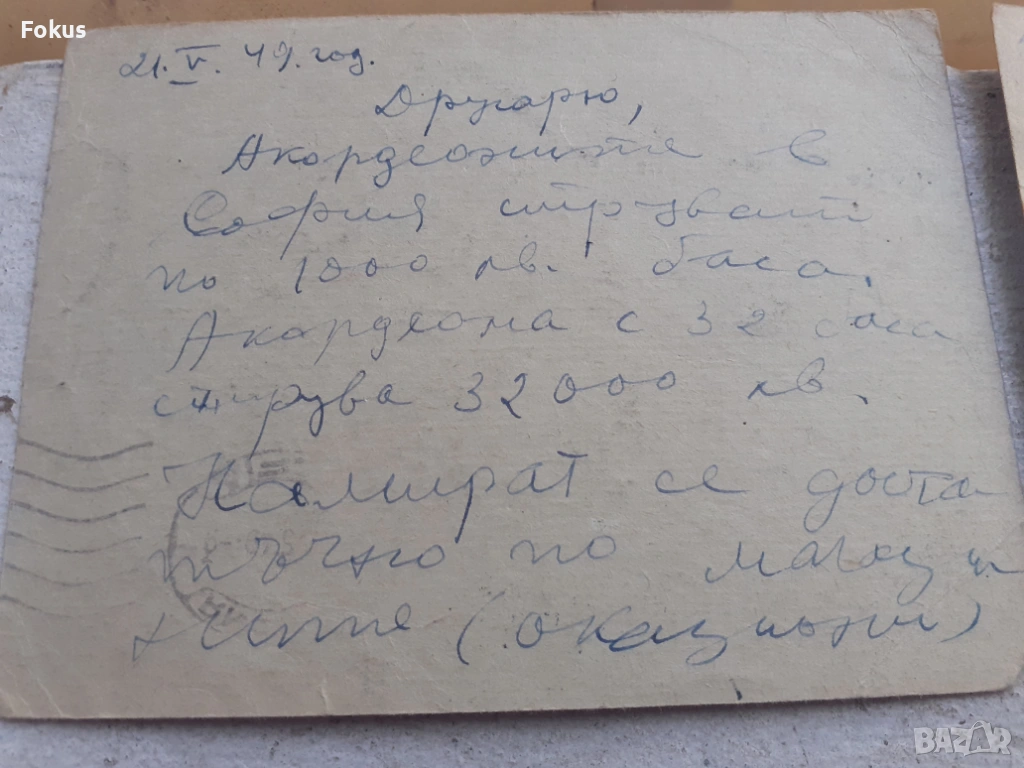 Fokus
21. V. 49. год.
Другарю,
Акордеоните в
София струват
по 1000 лв. баса.
Акордеона с 32 баса
струва 32000 лв.
Намират се доста
тъчно по магази
ните (оказиони)
BAZAR